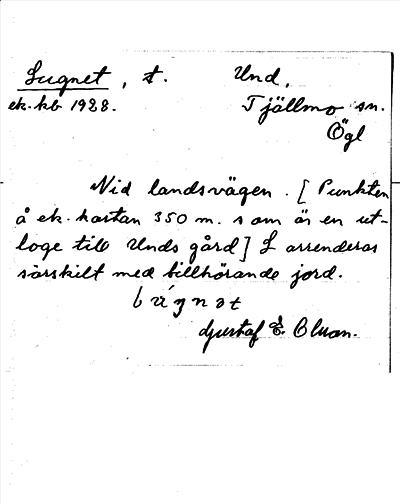 Lugnet, t. Und,
ek. kb 1928. Tjällmo sn.
Ögl
Vid landsvägen. [Punkten
å ek. kartan 350 m. som är en ut-
loge till Unds gård] L arrenderas
särskilt med tillhörande jord.
Gustaf E.